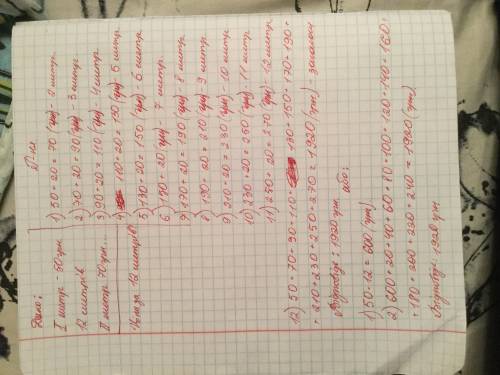 Дано:
I метр - 50 грн
12 метрів
II метр 70 грн...
за 12 метрів
1) 50+20=70 (грн) - 2 метр
2) 70+20=90 (грн) - 3 метр
3) 90+20=110 (грн) - 4 метр
4) 110+20=130 (грн) 5 метр
5) 130+20=150 (грн) - 6 метр
6) 150+20 (грн) - 7 метр
7) 170+20=190 (грн) - 8 метр
8) 190+20=210 (грн) 9 метр
9) 210+20=230 (грн) - 10 метр
10) 230+20=250 (грн) 11 метр
11) 250+20=270 (грн) - 12 метр
12) 50+70+90+110+130+150+170+190+
+210+230+250+270=1920 (грн) загалом
Відповідь: 1920 грн. або:
1) 50·12=600 (грн)
2) 600+20+40+60+80+100+120+140+160+
+180+200+220+240=1920 (грн)
Відповідь: 1920 грн